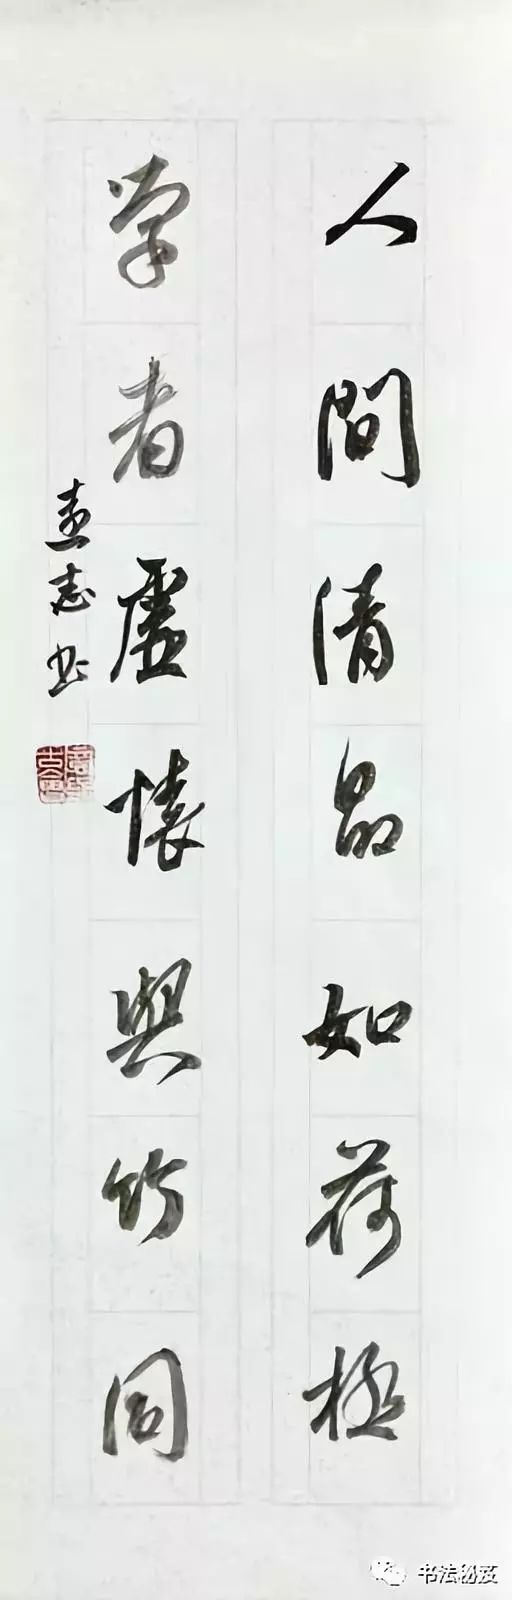 人間清品如荷極
学者虛懷與竹同
志书
书法秘笈